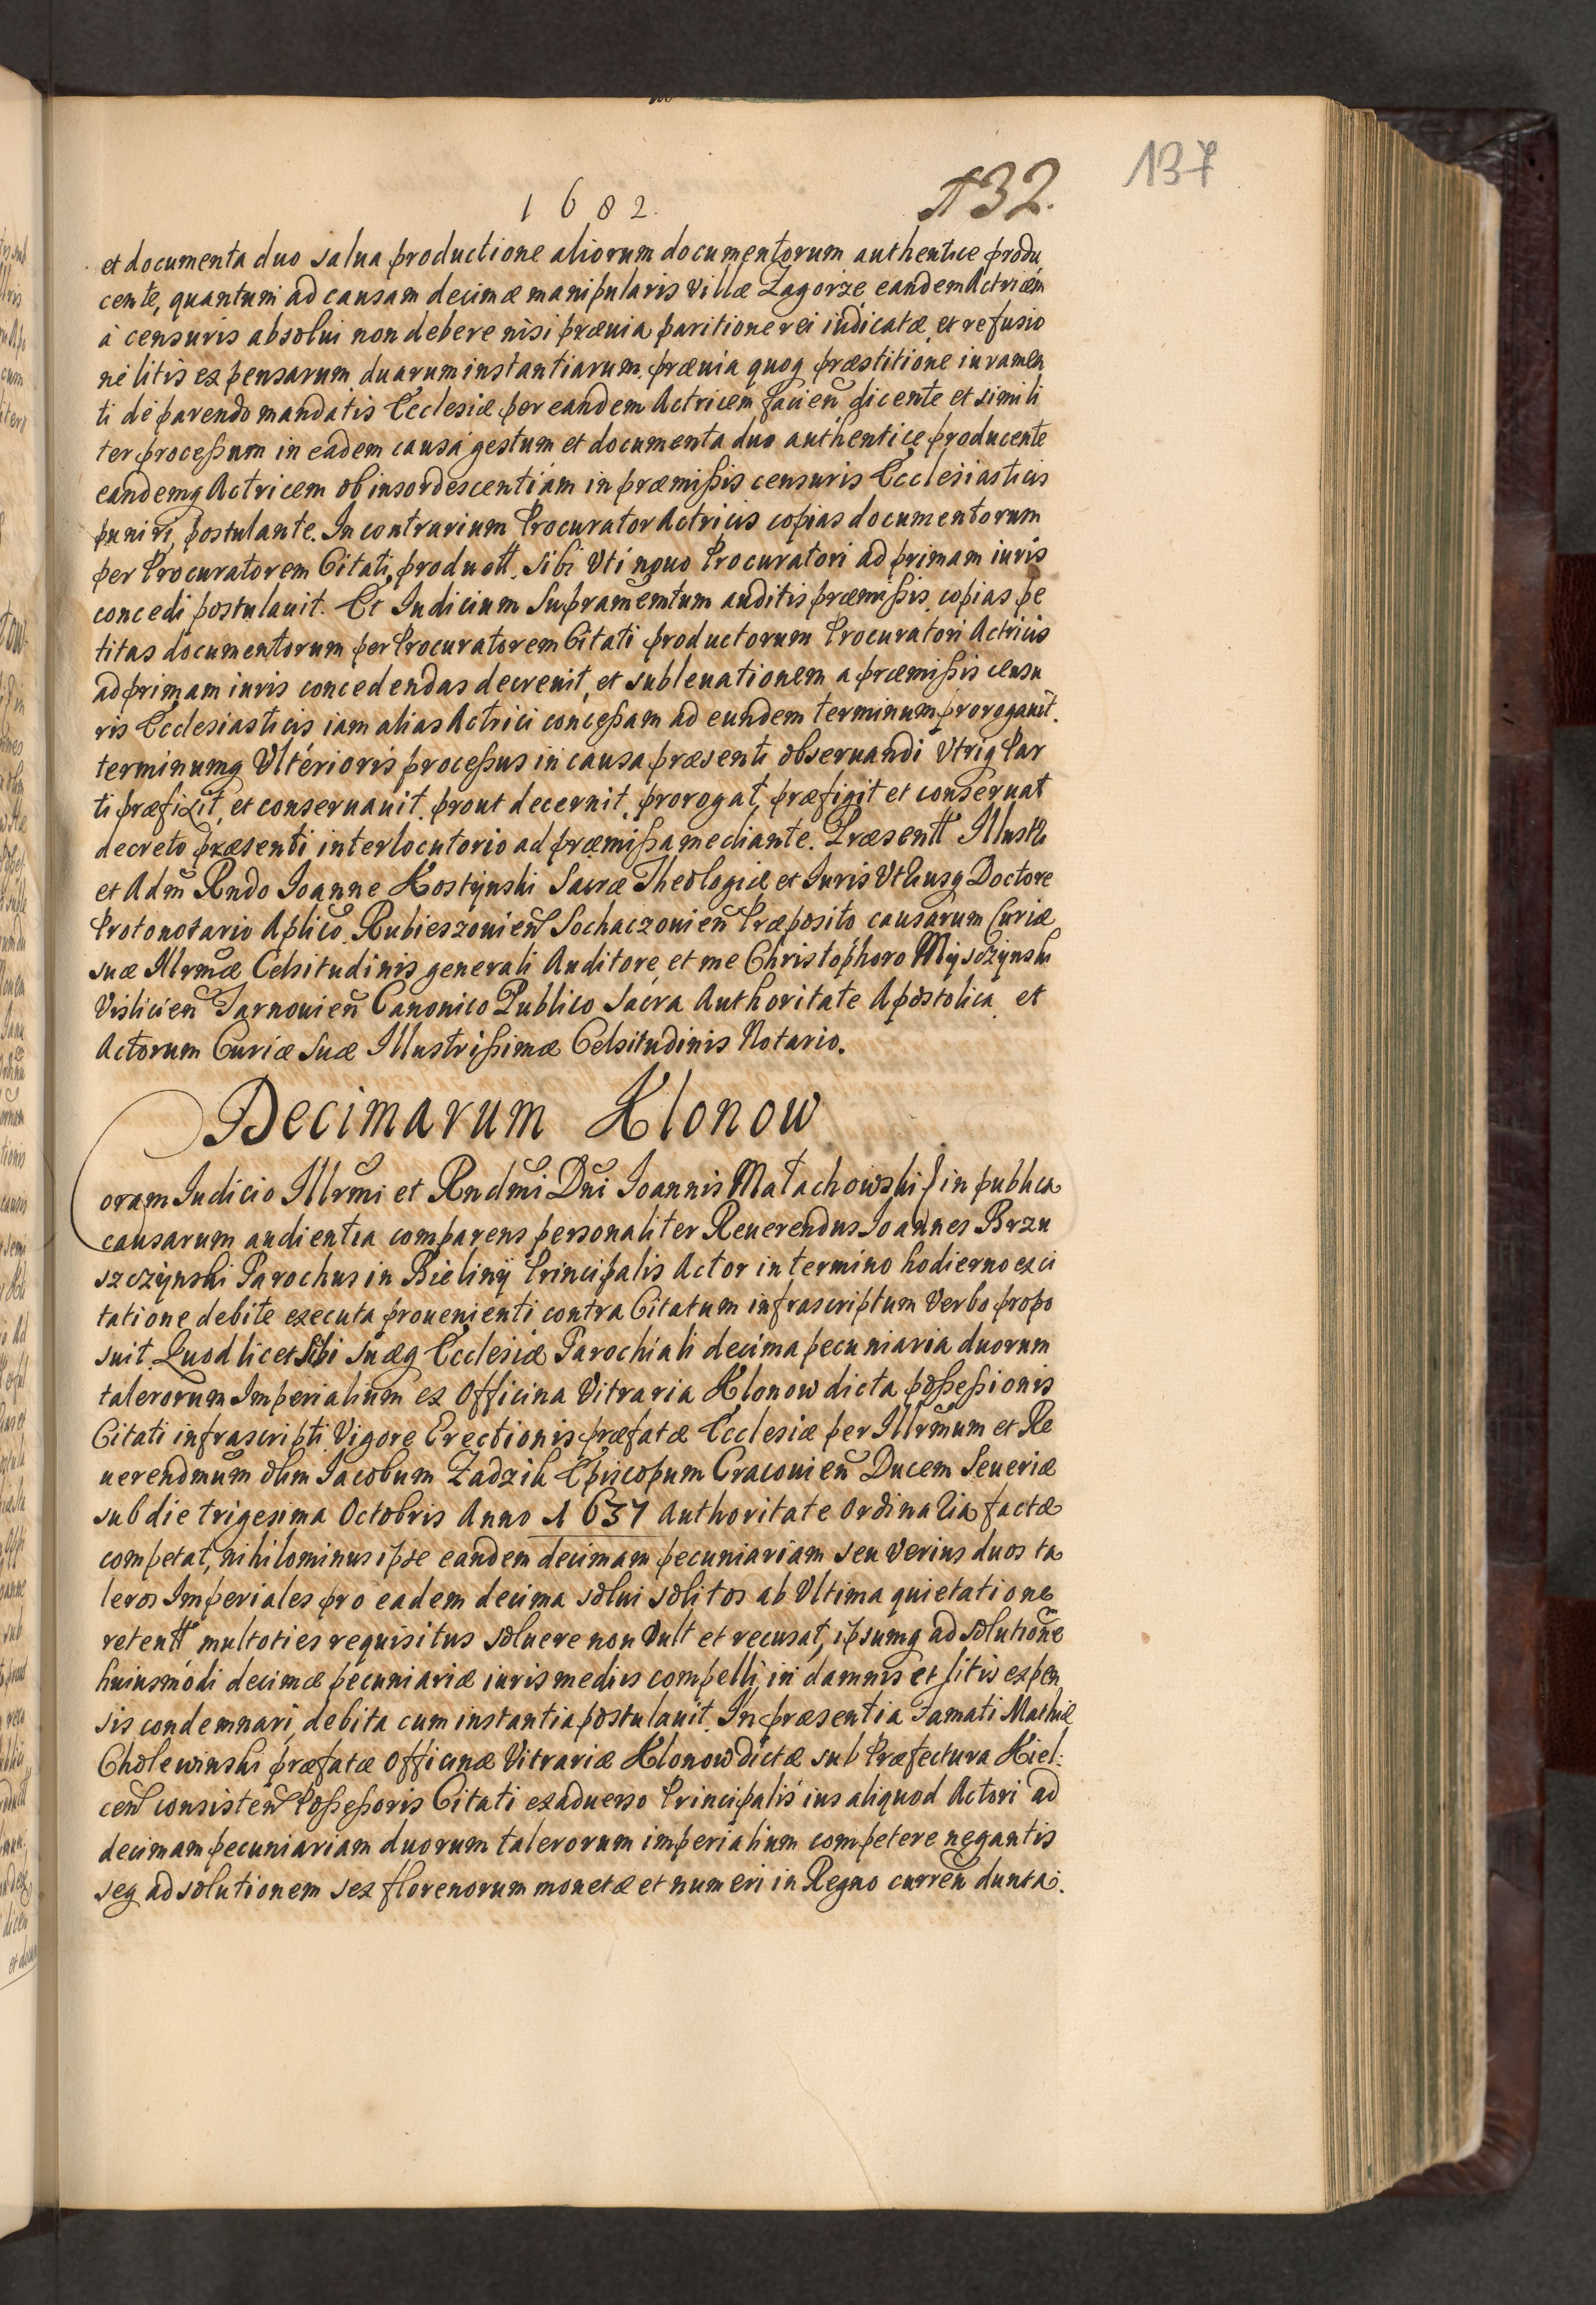 137
1682.
132.
et documenta duo salua productione aliorum documentorum authentice produ
cente, quantum ad causam decimæ manipularis Villæ Zagorze eandem Actricem
a censuris absolui non debere nisi præuia paritione rei iudicatæ et refusio
ne litis expensarum duarum instantiarum, præuia quoq præstitione iuramen
ti de parendo mandatis Ecclesiæ per eandem Actricem facien̄ dicente et simili
ter proceßum in eadem causa gestum et documenta duo authentice producente
eandemq Actricem ob insordescentiam in præmißis censuris Ecclesiasticis
puniri postulante. In contrarium Procurator Actricis copias documentorum
per Procuratorem Citati product̄t. sibi Vti nouo Procuratori ad primam iuris
concedi postulauit. Et Iudicium Supramem̄tum auditis præmißis copias pe
titas documentorum per Procuratorem Citati productorum Procuratori Actricis
ad primam iuris concedendas decreuit, et subleuationem a præmißis censu
ris Ecclesiasticis iam alias Actrici conceßam ad eundem terminum prorogauit.
terminumq Vlterioris proceßus in causa præsenti obseruandi Vtriq Par
ti præfixit, et conseruauit. prout decernit, prorogat, præfigit et conseruat
decreto præsenti interlocutorio ad præmißa mediante. Præsentt Illustri
et Adm̄ Rndo Ioanne Kostynski Sacræ Theologiæ et Iuris Vtriusq Doctore
Protonotario Aplico Rubieszouien̄ Sochaczouien̄ Præposito causarum Curiæ
suæ Illrmæ Celsitudinis generali Auditore et me Christophoro Myszynski
Vislicien̄ Tarnouien̄ Canonico Publico Sacra Authoritate Apostolica et
Actorum Curiæ Suæ Illustrißimæ Celsitudinis Notario.
Decimarum Klonow
Coram Iudicio Illrm̄i et Rndm̄i Dn̄i Ioannis Małachowski in publica
causarum audientia comparens personaliter Reuerendus Ioannes Brzu
szczynski Parochus in Bieliny Principalis Actor in termino hodierno ex ci
tatione debite executa prouenienti contra Citatum infrascriptum Verbo propo
suit. Quod licet Sibi suæq Ecclesiæ Parochiali decima pecuniaria duorum
talerorum Imperialium ex Officina Vitraria Klonow dicta poßeßionis
Citati infrascripti Vigore Erectionis præfatæ Ecclesiæ per Illrm̄um et Re
uerendmum olim Iacobum Zadzik Episcopum Cracouien̄ Ducem Seueriæ
sub die trigesima Octobris Anno 1637 Authoritate Ordinaria factæ
competat, nihilominus ipse eandem decimam pecuniariam seu Verius duos ta
leros Imperiales pro eadem decima solui solitos ab Vltima quietatione
retentt multoties requisitus soluere non Vult et recusat, ipsumq ad solutione̅
huiusmodi decimæ pecuniariæ iuris medijs compelli, in damnis et litis expen
sis condemnari, debita cum instantia postulauit. In præsentia Famati Mathiæ
Cholewinski præfatæ Officinæ Vitrariæ Klonow dictæ sub Præfectura Kiel:
cen̄ consisten̄ Poßeßoris Citati ex aduerso Principalis ius aliquod Actori ad
decimam pecuniariam duorum talerorum imperialium competere negantis
seq ad solutionem sex florenorum monetæ et numeri in Regno curren̄ dunta: